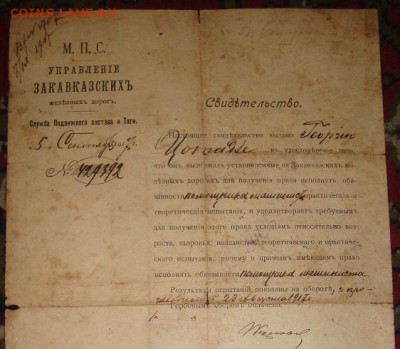 COINS.LAV.RU
М. П. С.
УПРАВЛЕНІЕ
ЗАКАВКАЗСКИХЪ
желѣзныхъ дорогъ.
Служба Подвижного состава и Тяги.
5 Сентября 1917 г.
№ 429392
Свидѣтельство.
Настоящее свидѣтельство выдано Георгію
въ удостовѣреніе
что былъ выдержалъ установленные на Закавказскихъ
желѣзныхъ дорогахъ для полученія права исполнять
обязанности помощника машиниста практическія и
теоретическія испытанія, и удовлетворяя требуемымъ
для полученія этого права условіямъ относительно воз-
раста, здоровья, познаній теоретическаго и практическаго
испытанія, почему и признанъ имѣющимъ право
исполнять обязанности помощника машиниста
Результаты испытаній показаны на оборотѣ,
23 августа 1917 г.
Гербовымъ сборомъ оплачено